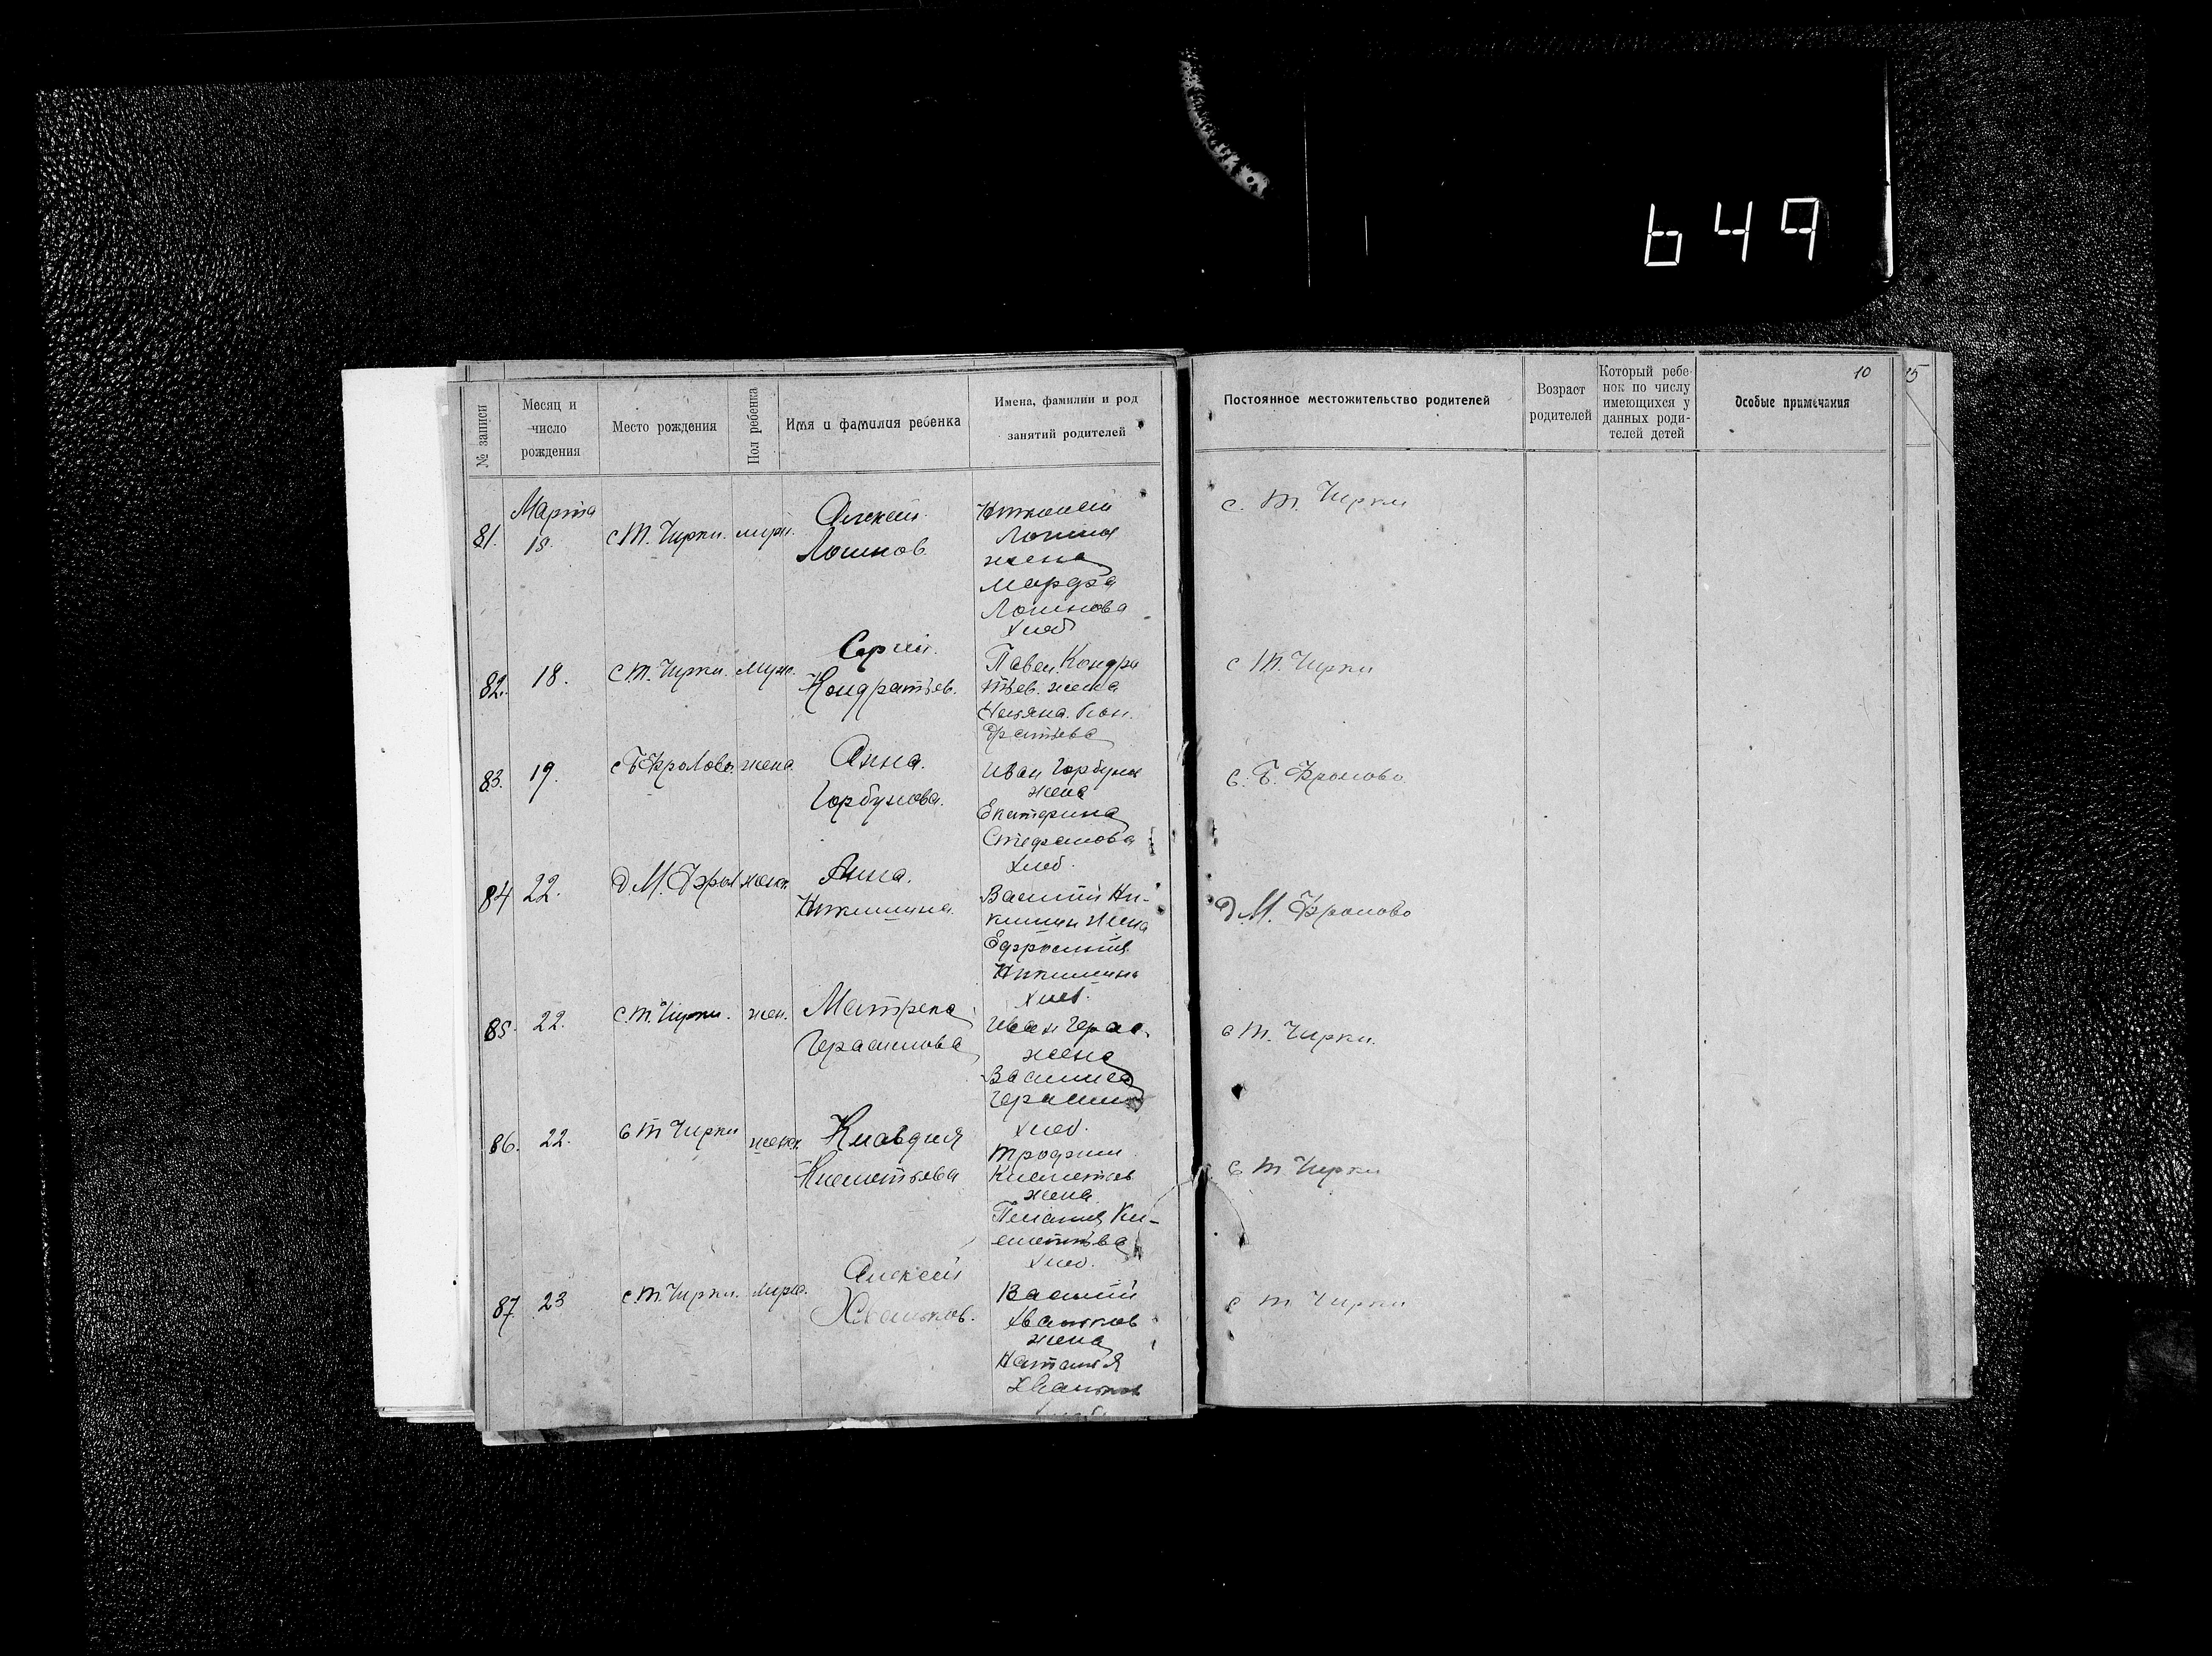 649
10
15
№ записи
Месяц и число рождения
Место рождения
Пол ребенка
Имя и фамилия ребенка
Имена, фамилии и род занятий родителей
Постоянное местожительство родителей
Возраст родителей
Который ребенок по числу имеющихся у данных родителей детей
Особые примечания
Марта
81. 18. с Т. Чирки. муж. Алексей Логинов. Николай Логинов жена Марфа Логинова хлеб с. Т. Чирки
82. 18. с Т. Чирки. муж. Сергей. Кондратьев. Павел Кондратьев. жена Кондратьева с Т. Чирки
83. 19. с Б Фролово. жена. Анна. Горбунова. Иван Горбунов жена Екатерина Стефанова хлеб. с. Б. Фролово
84 22. д М. Фрол женс. Анна. Никишина. Василий Никишин жена Ефросиния Никишина хлеб. д. М. Фролово
85. 22. с. Т. Чирки. жен. Матрена Герасимова Иван Герас. жена Василиса Герасим хлеб. с Т. Чирки.
86. 22. с Т Чирки женск Клавдия Климентьева Трофим Климентьев жена Пелагия Климентьева хлеб. с Т Чирки
87. 23 с. Т. Чирки. муж. Алексей Хвальков. Василий Хвальков жена Наталья Хвальков с Т Чирки